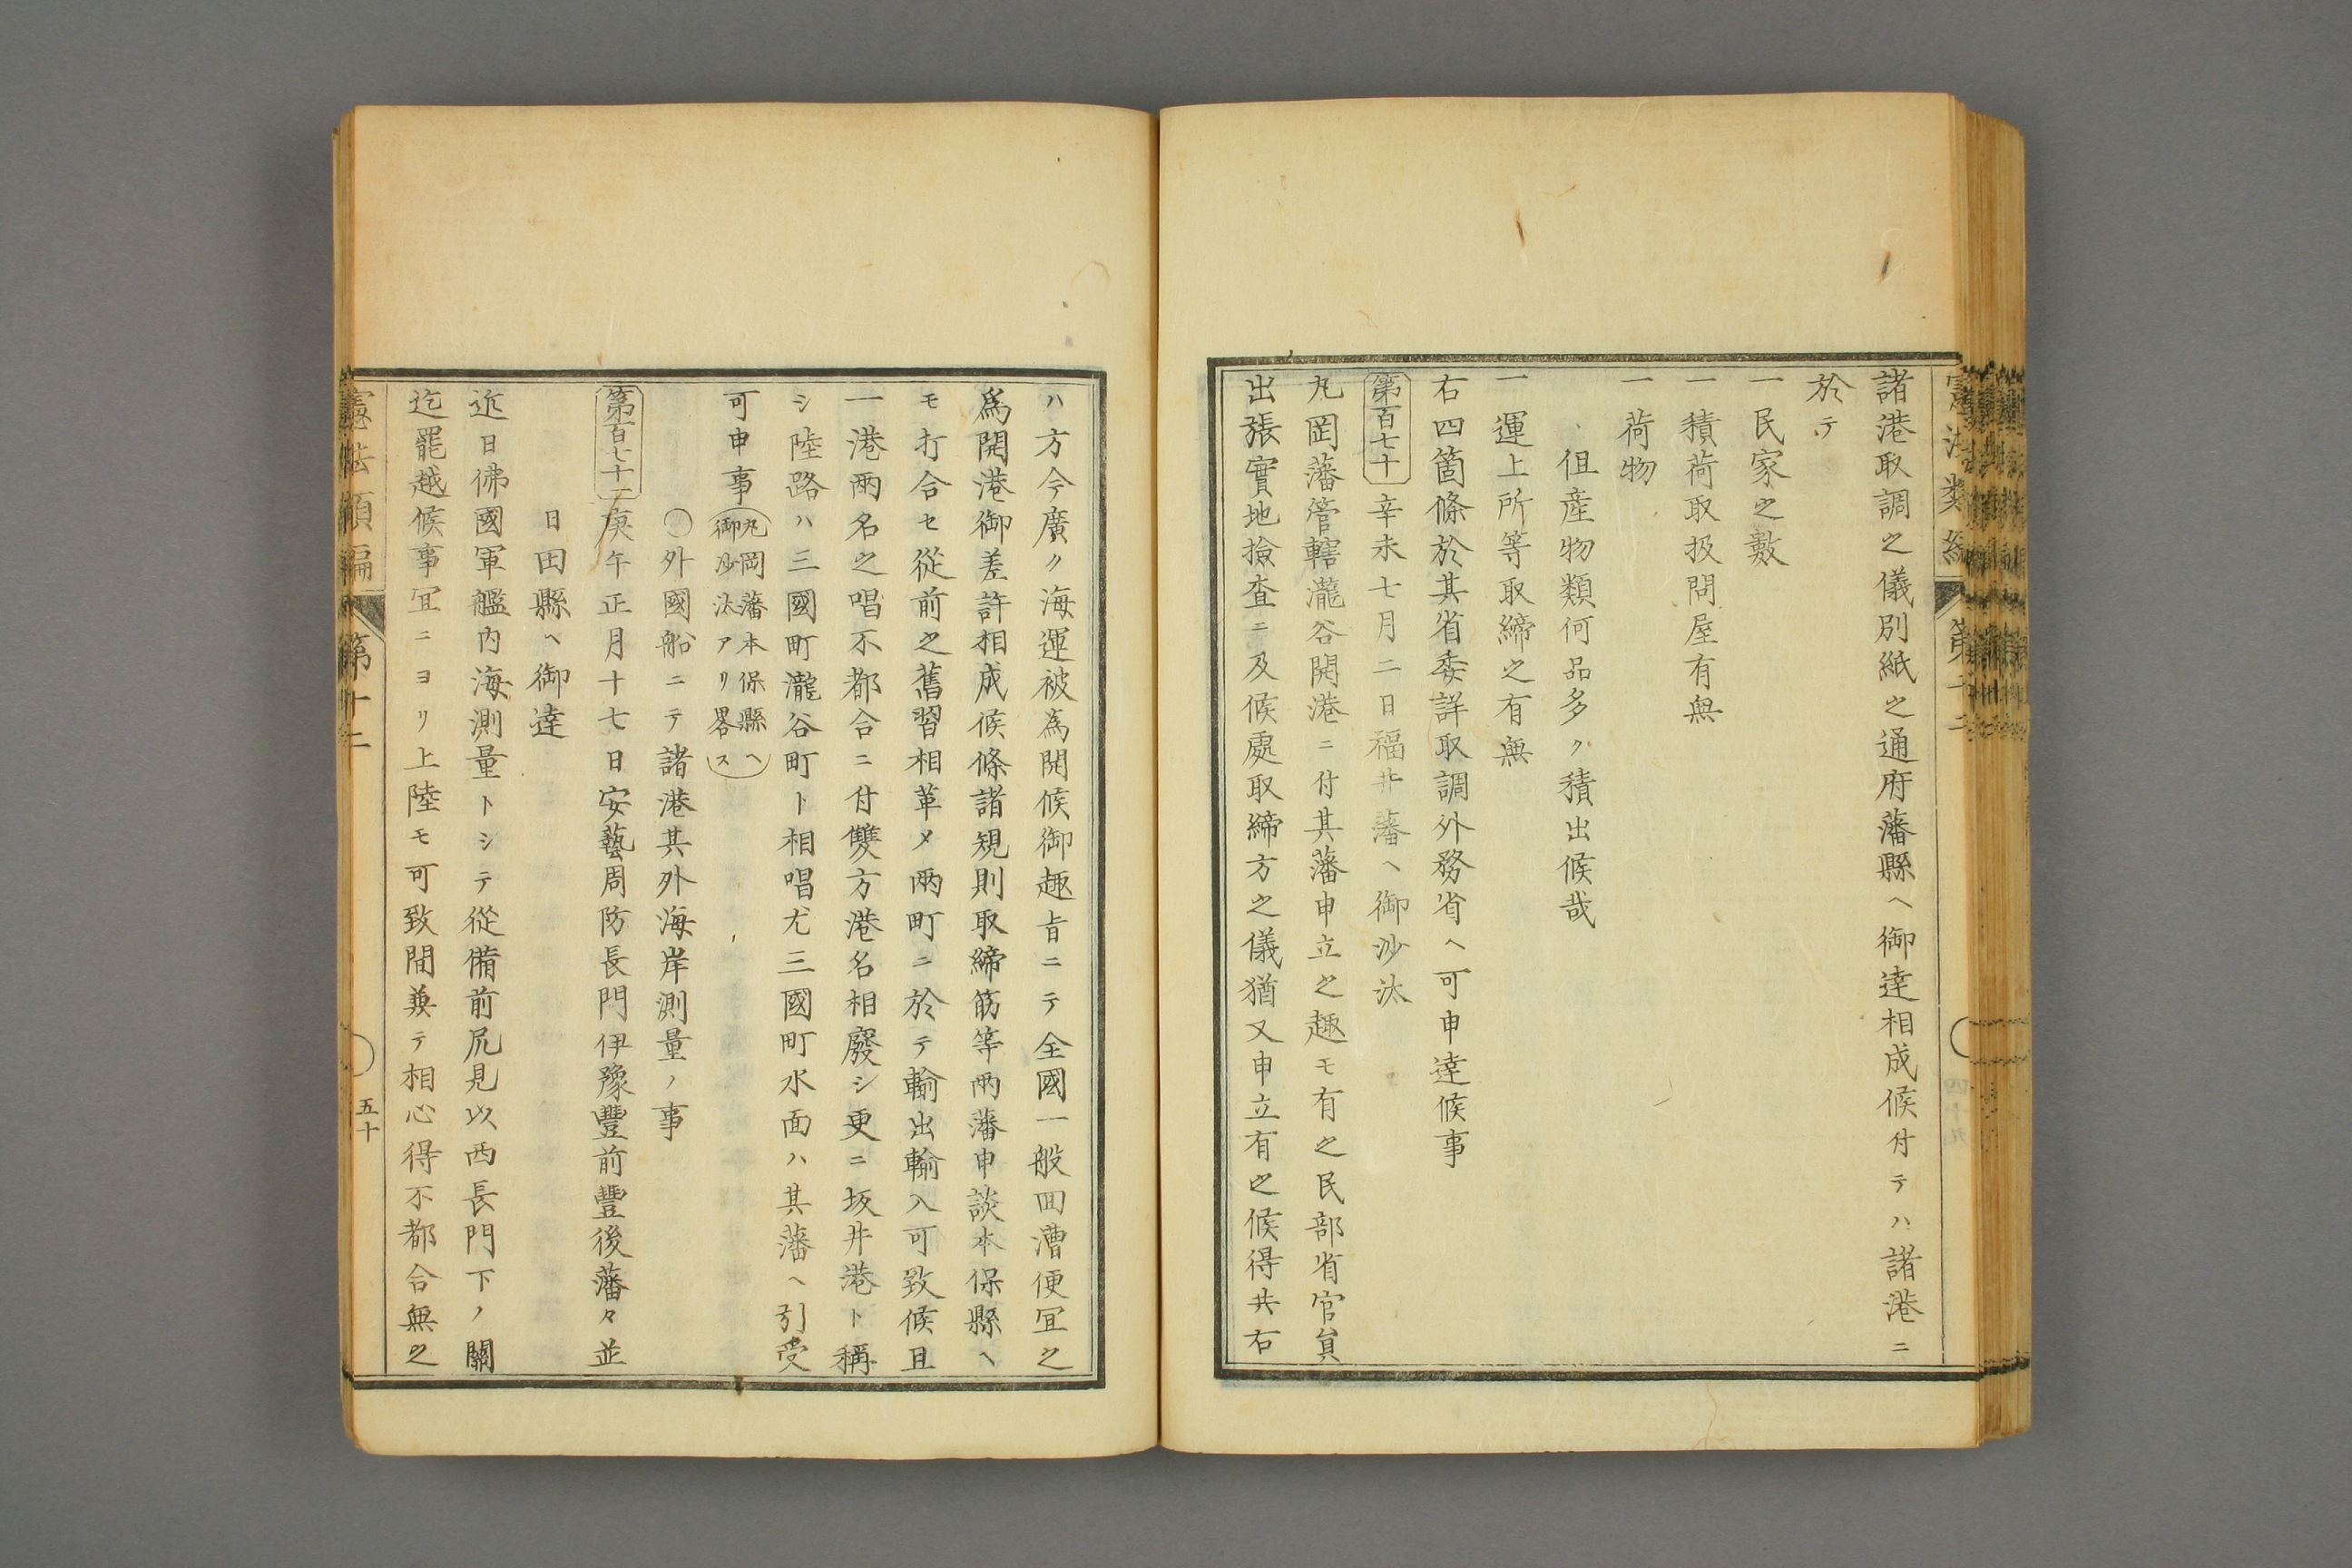 憲法類編
第十二
諸港取調之儀別紙之通府藩縣ヘ御達相成候付テハ諸港ニ
於テ
一民家之數
一積荷取扱問屋有無
一荷物
但産物類何品多ク積出候哉
一運上所等取締之有無
右四箇條於其省委詳取調外務省ヘ可申達候事
第百七十辛未七月二日福井藩ヘ御沙汰
丸岡藩管轄瀧谷開港ニ付其藩申立之趣モ有之民部省官員
出張實地撿査ニ及候處取締方之儀猶又申立有之候得共右
ハ方今廣ク海運被爲開候御趣旨ニテ全國一般回漕便冝之
爲開港御差許相成候條諸規則取締筋等兩藩申談本保縣ヘ
モ打合セ從前之舊習相革メ兩町ニ於テ輸出輸入可致候且
一港兩名之唱不都合ニ付雙方港名相廢シ更ニ坂井港ト稱
シ陸路ハ三國町瀧谷町ト相唱尤三國町水面ハ其藩ヘ引受
可申事(丸岡藩本保縣ヘ
御沙汰アリ畧ス)
〇外國船ニテ諸港其外海岸測量ノ事
第百七十一庚午正月十七日安藝周防長門伊豫豐前豐後藩々並
日田縣ヘ御達
近日佛國軍艦內海測量トシテ從備前尻見以西長門下ノ關
迄罷越候事冝ニヨリ上陸モ可致間兼テ相心得不都合無之
憲法類編
第十二
五十